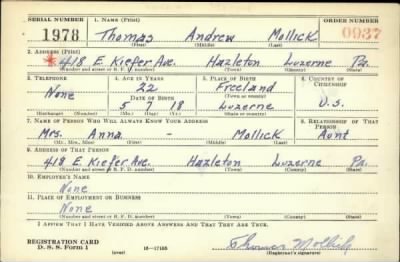 SERIAL NUMBER 1. NAME (Print) ORDER NUMBER
1978 Thomas Andrew Mollick 0937
(First) (Middle) (Last)
2. ADDRESS (Print)
*418 E. Kiefer Ave. Hazleton Luzerne Pa.
(Number and street or R. F. D. number) (Town) (County) (State)
3. TELEPHONE 4. AGE IN YEARS 5. PLACE OF BIRTH 6. COUNTRY OF CITIZENSHIP
None 22 Freeland
DATE OF BIRTH
5 7 18 Luzerne U.S.
(Exchange) (Number) (Mo.) (Day) (Yr.) (State or country)
7. NAME OF PERSON WHO WILL ALWAYS KNOW YOUR ADDRESS 8. RELATIONSHIP OF THAT PERSON
Mrs. Anna - Mollick Aunt
(Mr., Mrs., Miss) (First) (Middle) (Last)
9. ADDRESS OF THAT PERSON
418 E. Kiefer Ave. Hazleton Luzerne Pa.
(Number and street or R. F. D. number) (Town) (County) (State)
10. EMPLOYER'S NAME
None
11. PLACE OF EMPLOYMENT OR BUSINESS
None
(Number and street or R. F. D. number) (Town) (County) (State)
I AFFIRM THAT I HAVE VERIFIED ABOVE ANSWERS AND THAT THEY ARE TRUE.
REGISTRATION CARD
D. S. S. Form 1 (over) 16-17105 Thomas Mollick
(Registrant's signature)